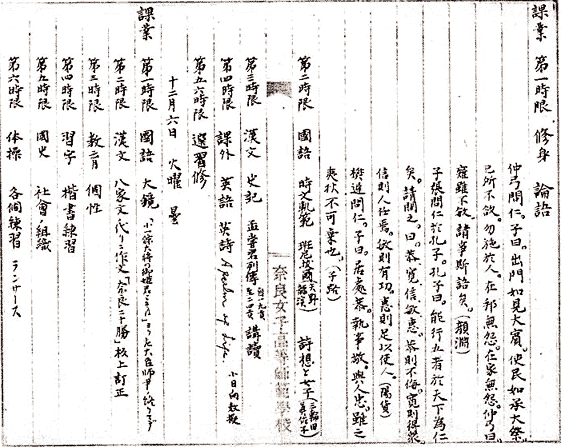 課業 第一時限 修身 論語
仲弓問仁。子曰。出門如見大賓。使民如承大祭。
己所不欲。勿施於人。在邦無怨。在家無怨。仲弓曰。
雍雖不敏。請事斯語矣。(顔淵)
子張問仁於孔子。孔子曰。能行五者於天下為仁
矣。請問之。曰。恭寛信敏惠。恭則不侮。寛則得衆。
信則人任焉。敏則有功。惠則足以使人。(陽貨)
樊遅問仁。子曰。居處恭。執事敬。與人忠。雖之
夷狄。不可棄也。(子路)
第二時限 國語 時文軌範 詩想と女子
奈良女子高等師範學校
第三時限 漢文 史記 孟嘗君列傳 講讀
第四時限 課外 英語 英詩 A psalm of Life 小日向教授
第五六時限 選習修
十二月六日 火曜 曇
課業 第一時限 國語 大鏡
第二時限 漢文 八家文ノ代リニ作文「奈良二十勝」板上訂正
第三時限 教育 個性
第四時限 習字 楷書練習
第五時限 國史 社會ノ組織
第六時限 体操 各個練習 ランサース